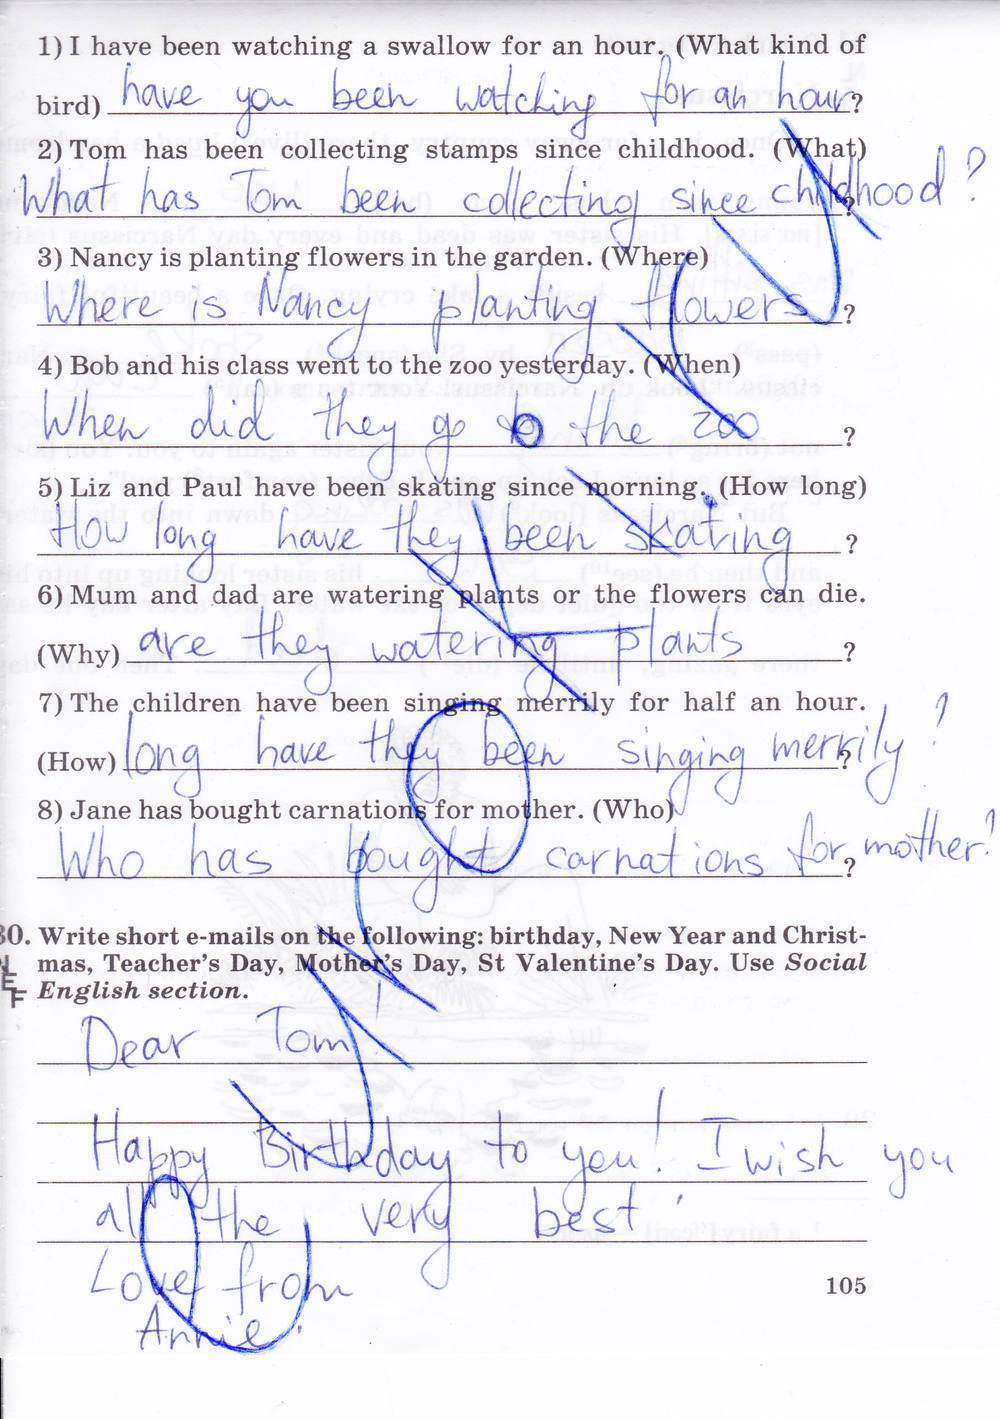 1) I have been watching a swallow for an hour. (What kind of
bird) have you been watching for an hour?
2) Tom has been collecting stamps since childhood. (What)
What has Tom been collecting since childhood?
3) Nancy is planting flowers in the garden. (Where)
Where is Nancy planting flowers?
4) Bob and his class went to the zoo yesterday. (When)
When did they go to the zoo?
5) Liz and Paul have been skating since morning. (How long)
How long have they been skating?
6) Mum and dad are watering plants or the flowers can die.
(Why) are they watering plants?
7) The children have been singing merrily for half an hour.
(How) long have they been singing merrily?
8) Jane has bought carnations for mother. (Who)
Who has bought carnations for mother?
30. Write short e-mails on the following: birthday, New Year and Christ-
mas, Teacher's Day, Mother's Day, St Valentine's Day. Use Social
English section.
Dear Tom!
Happy Birthday to you! I wish you
all the very best!
Love from
Annie.
105